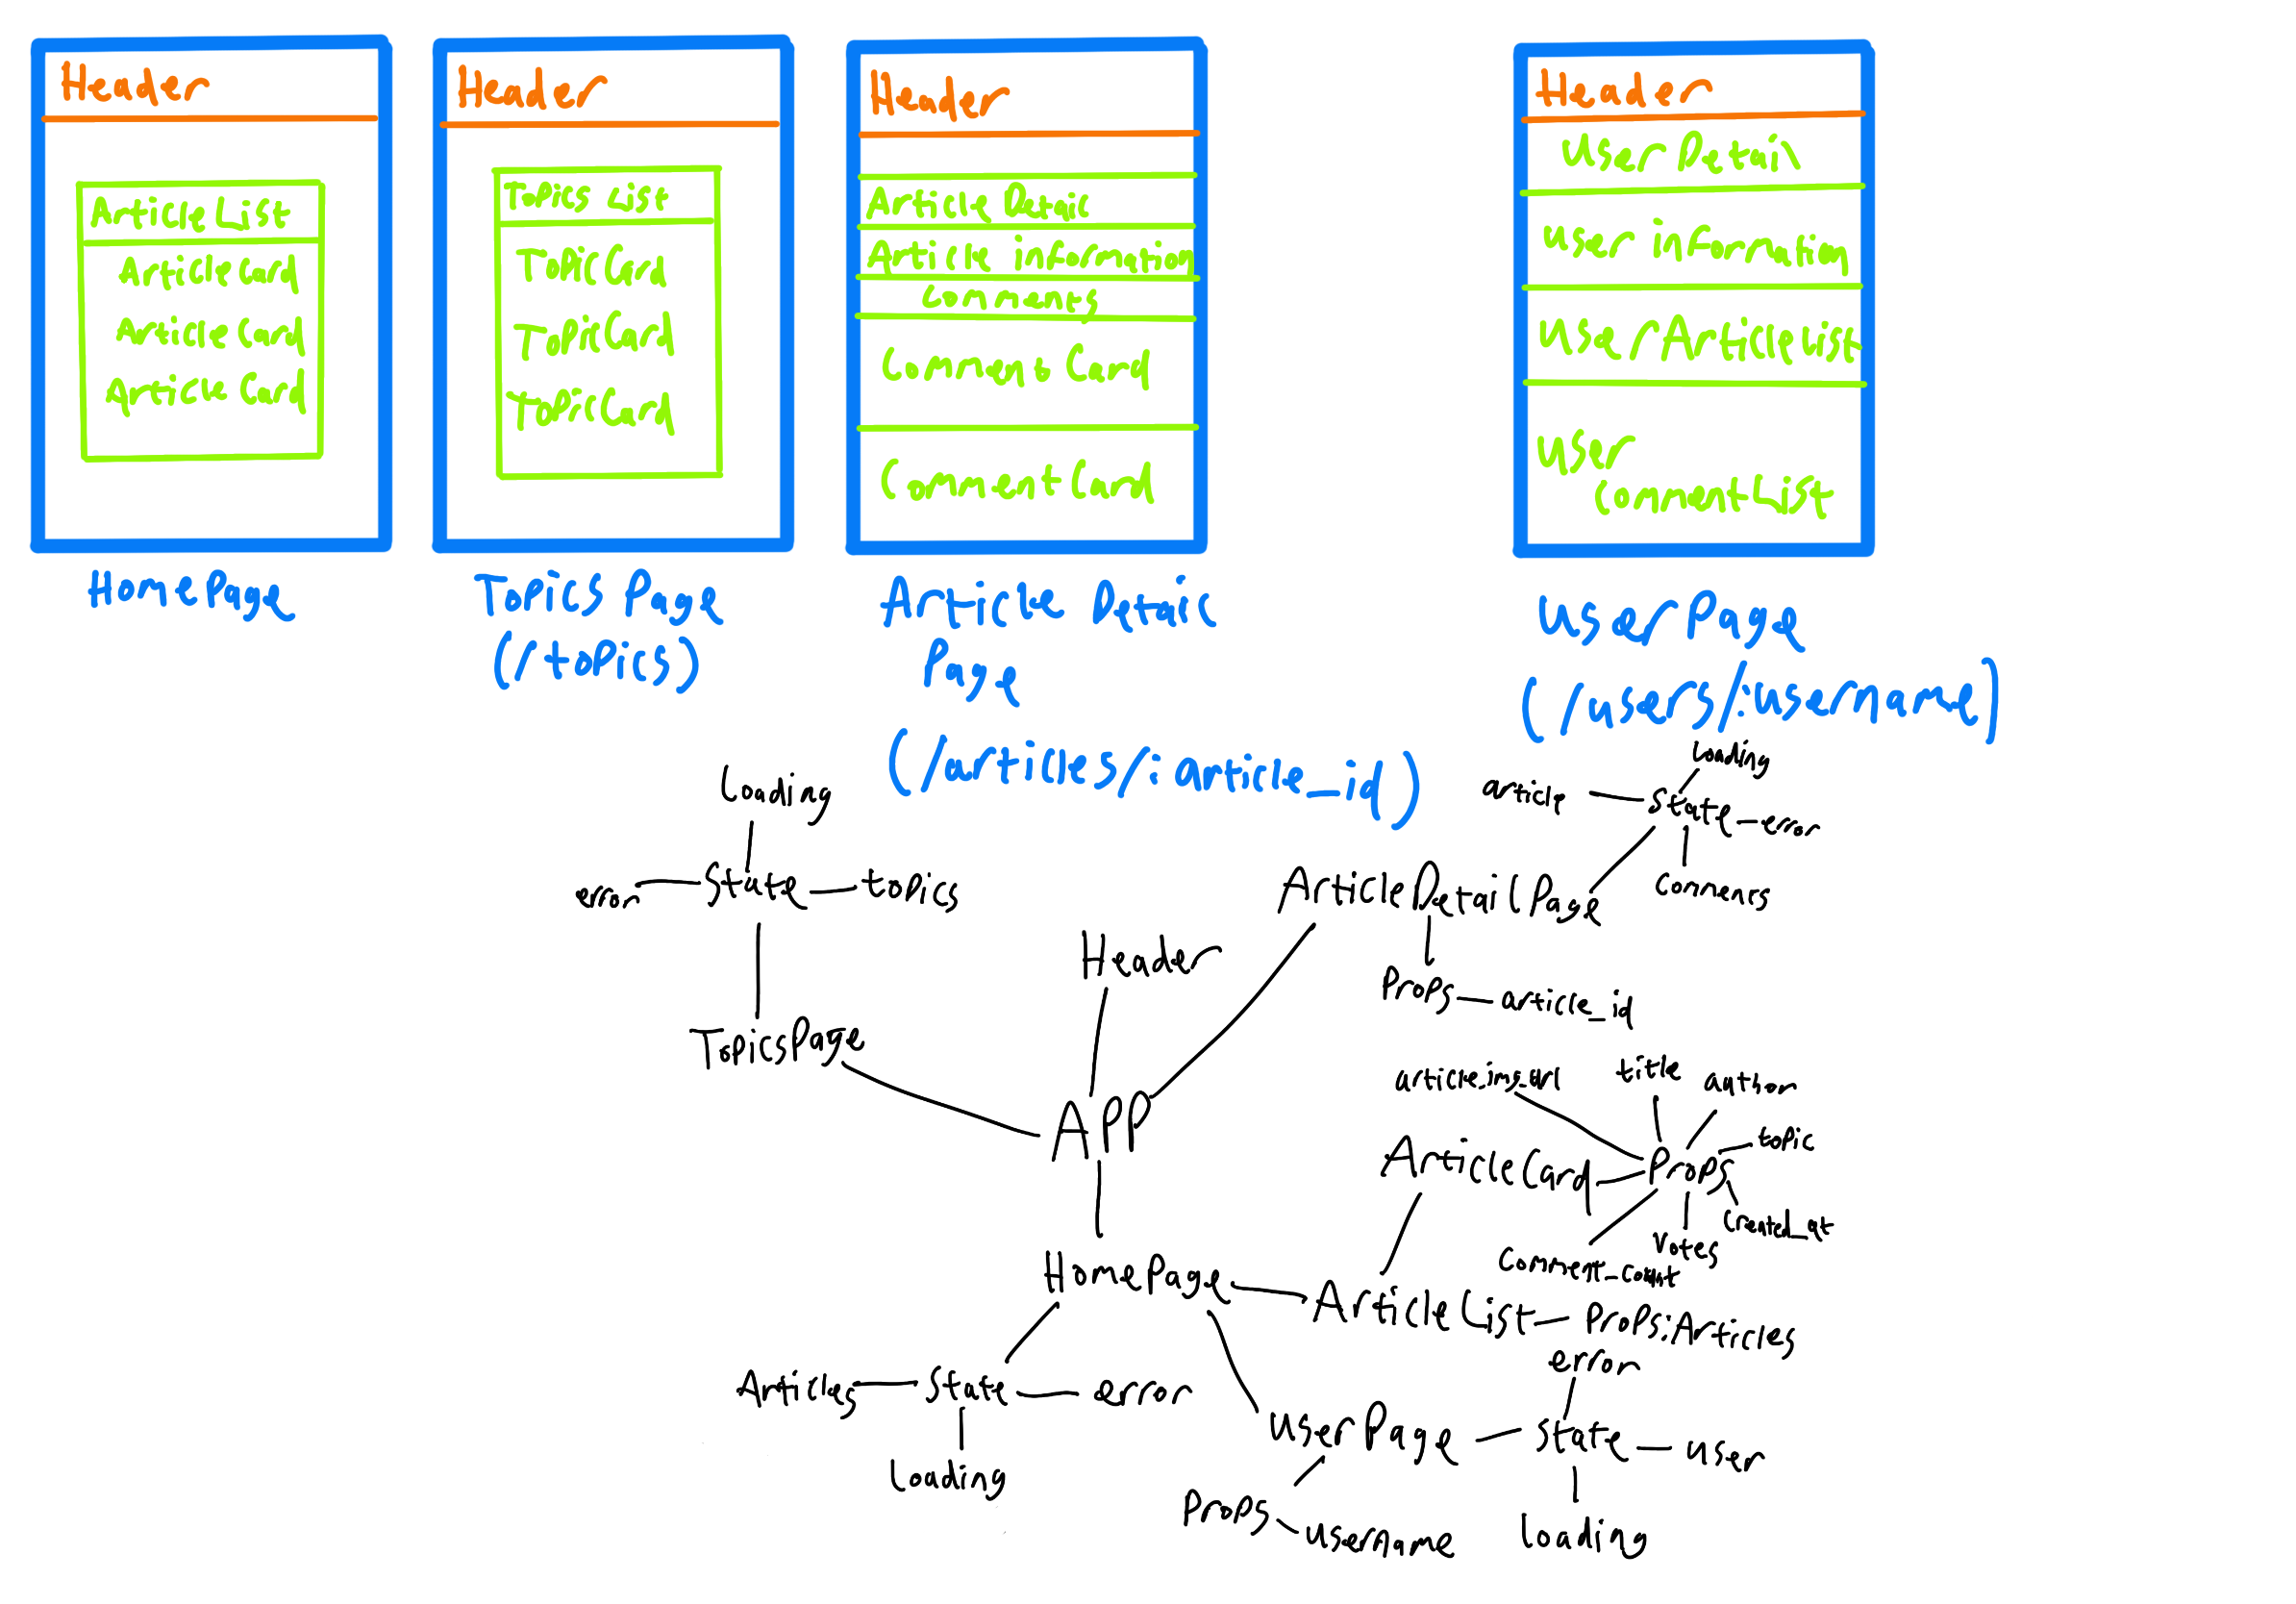 Header
ArticleList
ArticleCard
ArticleCard
ArticleCard
HomePage
Header
Topics List
TopicCard
TopicCard
TopicCard
Topics Page
(/topics)
Header
Article Detail
Article information
Comments
Comment Card
CommentCard
Article Detail
Page
(/articles/:article_id)
Header
UserDetail
User information
UserArticleList
User
CommentList
UserPage
(/users/:username)
Loading
error State topics
TopicsPage
Header
App
Loading
article State error
Comments
ArticleDetailPage
Props article_id
article_img_url title author
ArticleCard Props topic
created_at
Votes
Comment_count
HomePage ArticleList Props:Articles
Articles State error
Loading
error
UserPage State user
Props username
Loading